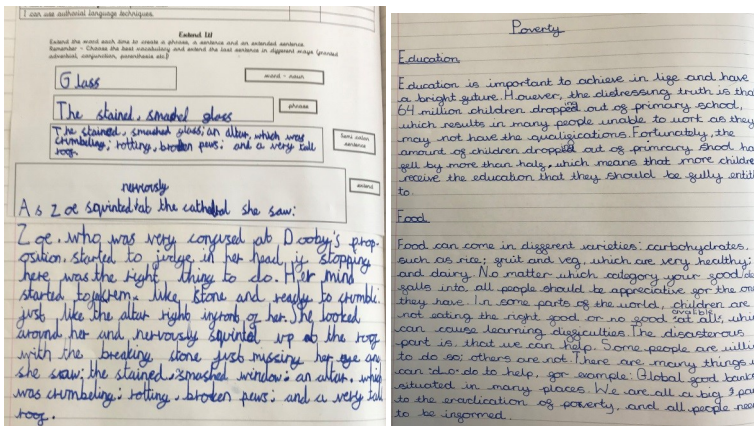 I can use authorial language techniques.
Extend It!
Extend the word each time to create a phrase, a sentence and an extended sentence.
Remember - Choose the best vocabulary and extend the last sentence in different ways (fronted
adverbial, conjunction, parenthesis etc)
Glass
word - noun
The stained, smashed glass
phrase
The stained, smashed glass; an altar, which was
crumbeling; rotting, broken pews; and a very tall
roof.
Semi colon
sentence
extend
nervously
As Zoe squinted at the cathedral she saw:
Zoe, who was very confused at Dooby's prop-
osition, started to judge in her head if stopping
here was the right thing to do. Her mind
started to like stone and ready to crumble
just like the altar right infront of her. She looked
around her and nervously squinted up at the roof
with the breaking stone just missing her eye and
she saw: the stained, smashed window; an altar, which
was crumbeling; rotting, broken pews; and a very tall
roof.
Poverty
Education
Education is important to achieve in life and have
a bright future. However, the distressing truth is that
64 million children dropping out of primary school,
which results in many people unable to work as they
may not have the qualifications. Fortunately, the
amount of children dropping out of primrary shool ha
fell by more than half, which means that more childre
receive the education that they should be fully entit
to.
Food
Food can come in different varieties: carbohydrates,
such as rice; fruit and veg, which are very healthy;
and dairy. No matter which category your food
falls into, all people should be appreciative for the one
they have. In some parts of the world, children are
available
not eating the right food or no food at all, whi
can cause learning difficulties. The disasterous
part is, that we can help. Some people are willin
to do so; others are not. There are many things
can do to help, for example: Global food bank
situated in many places. We are all a big
to the eradication of poverty, and all people nee
to be informed.